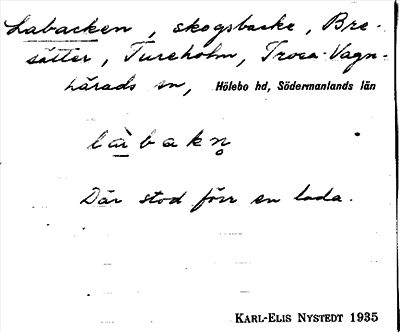 Labacken, skogsbacke, Bre-
sätter, Tureholm, Trosa-Vagn-
härads sn, Hölebo hd, Södermanlands län
làbakn̥
Där stod förr en lada.
KARL-ELIS NYSTEDT 1935